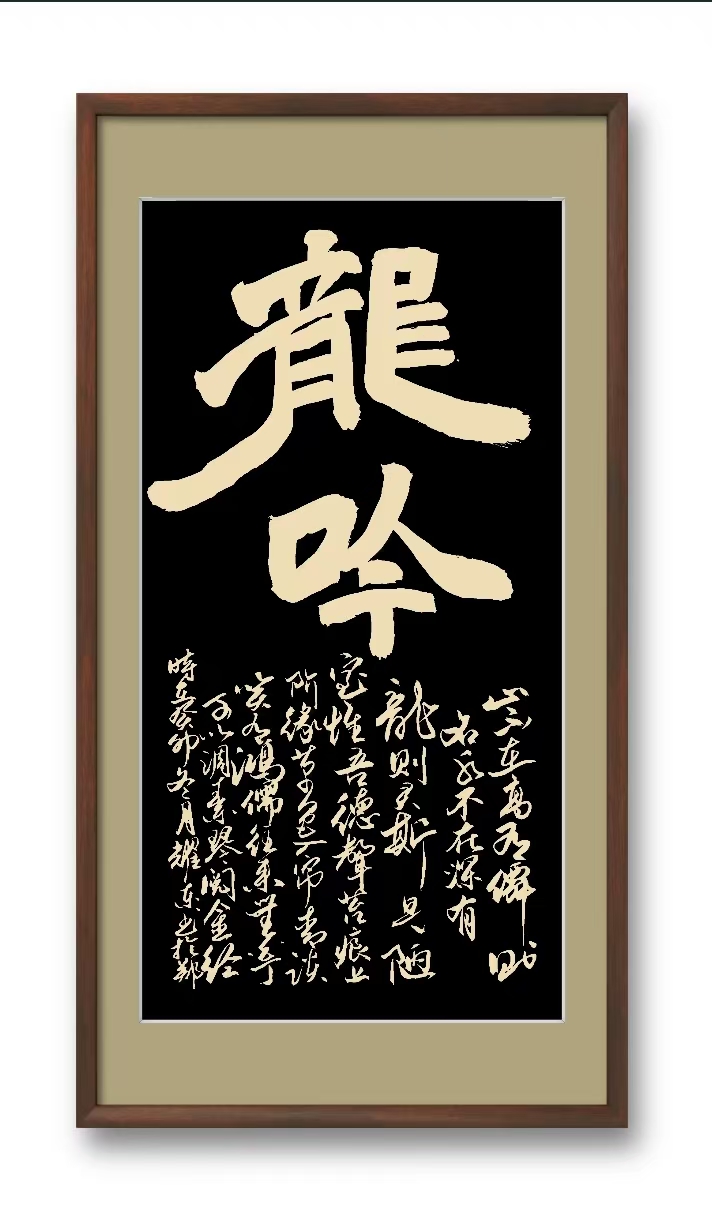 龍吟
山不在高有僊則
名水不在深有
龍則灵斯是陋
室惟吾德馨苔痕上
阶綠草色入帘青談
笑有鴻儒往来無白丁
可以調素琴閱金经
時在癸卯冬月耀东书於鄭